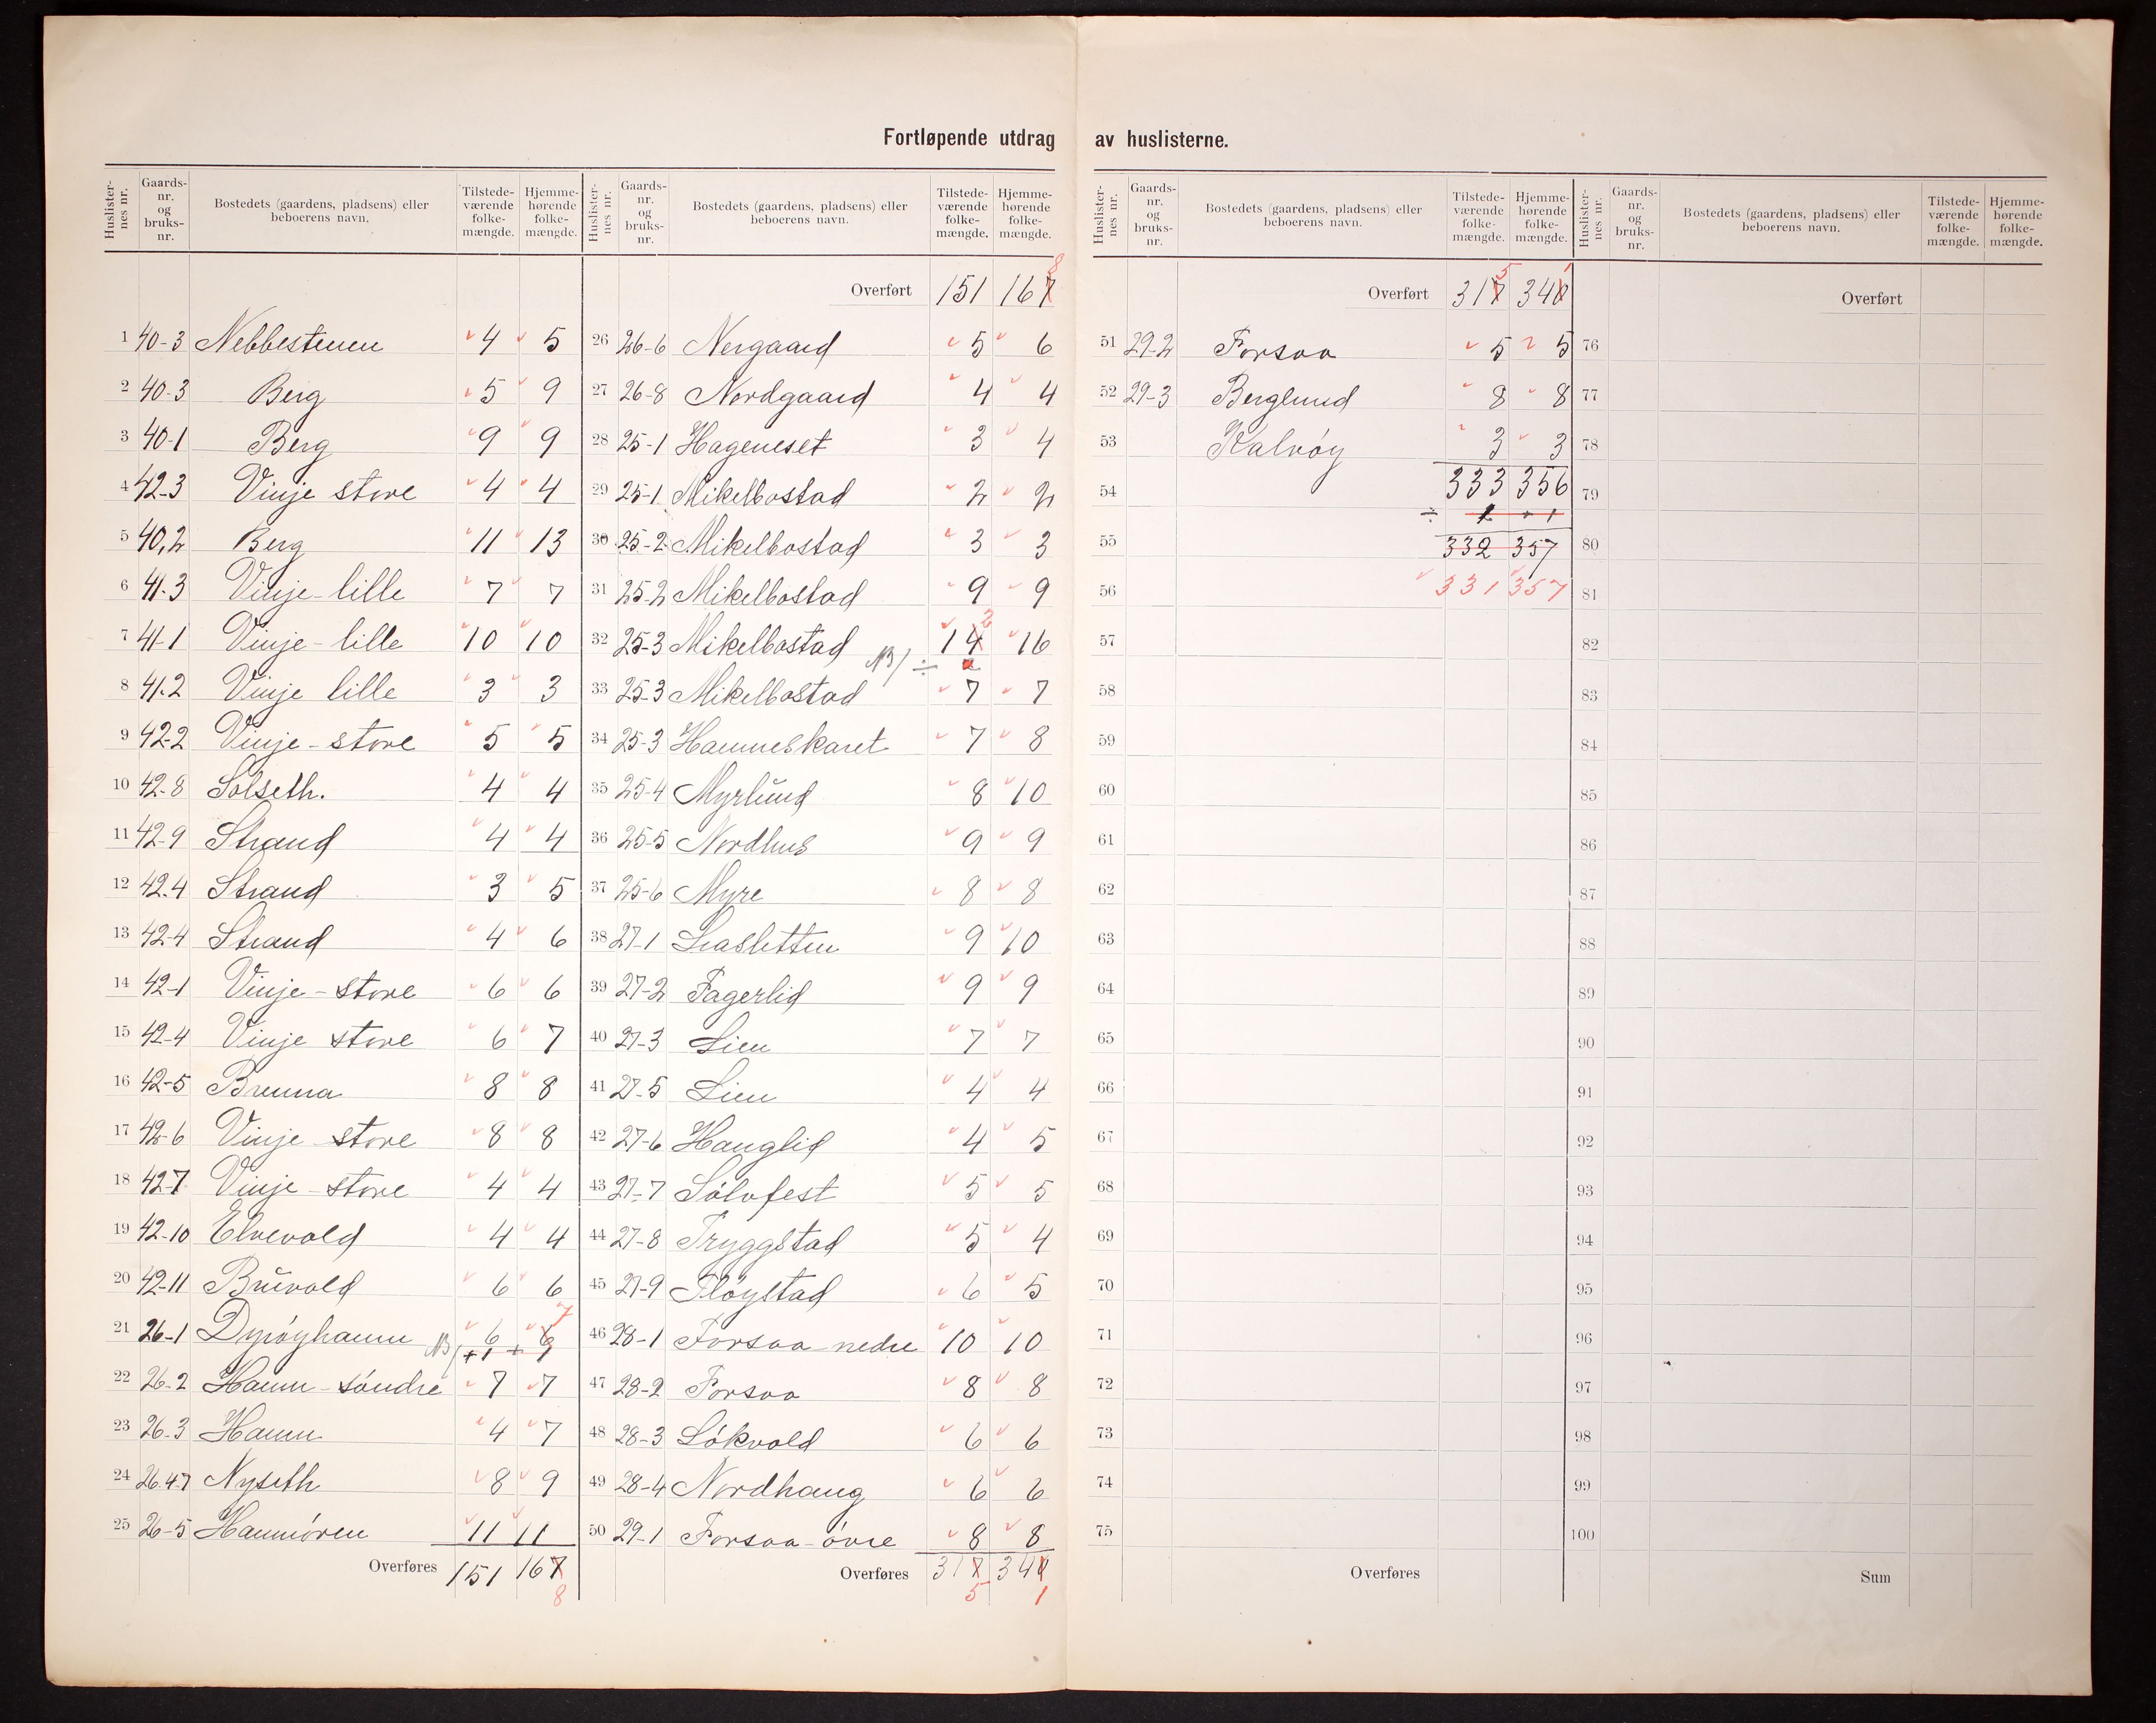 Fortløpende utdrag av huslisterne.
Huslisternes nr. Gaards-nr. og bruks-nr. Bostedets (gaardens, pladsens) eller beboerens navn. Tilstedeværende folkemængde. Hjemmehørende folkemængde.
1 40-3 Nebbestenen 4 5
2 40-3 Berg 5 9
3 40-1 Berg 9 9
4 42-3 Vinje store 4 4
5 40,2 Berg 11 13
6 41.3 Vinje-lille 7 7
7 41-1 Vinje-lille 10 10
8 41.2 Vinje lille 3 3
9 42-2 Vinje-store 5 5
10 42-8 Solseth. 4 4
11 42-9 Strand 4 4
12 42.4 Strand 3 5
13 42-4 Strand 4 6
14 42-1 Vinje-store 6 6
15 42-4 Vinje store 6 7
16 42-5 Brenna 8 8
17 42-6 Vinje store 8 8
18 42-7 Vinje-store 4 4
19 42-10 Elvevold 4 4
20 42-11 Brüvold 6 6
21 26-1 Dyrøyhamn 6 6 7
NB/ +1 + 1
22 26-2 Hamn-søndre 7 7
23 26-3 Hamn 4 7
24 26.4-7 Nyseth 8 9
25 26-5 Hamnøren 11 11
Overføres 151 167
8
Huslisternes nr. Gaards-nr. og bruks-nr. Bostedets (gaardens, pladsens) eller beboerens navn. Tilstedeværende folkemængde. Hjemmehørende folkemængde.
Overført 151 167 8
26 26-6 Nergaard 5 6
27 26-8 Nordgaard 4 4
28 25-1 Hageneset 3 4
29 25-1 Mikelbostad 2 2
30 25-2 Mikelbostad 3 3
31 25-2 Mikelbostad 9 9
32 25-3 Mikelbostad 14 2 16
NB/ ÷ 2
33 25-3 Mikelbostad 7 7
34 25-3 Hamneskaret 7 8
35 25-4 Myrlund 8 10
36 25-5 Nordhus 9 9
37 25-6 Myre 8 8
38 27-1 Liasletten 9 10
39 27-2 Fagerlid 9 9
40 27-3 Lien 7 7
41 27-5 Lien 4 4
42 27-6 Hauglid 4 5
43 27-7 Sølvfest 5 5
44 27-8 Tryggstad 5 4
45 27-9 Fløystad 6 5
46 28-1 Forsaa nedre 10 10
47 28-2 Forsaa 8 8
48 28-3 Løkvold 6 6
49 28-4 Nordhaug 6 6
50 29-1 Forsaa-øvre 8 8
Overføres 317 340
5 1
Huslisternes nr. Gaards-nr. og bruks-nr. Bostedets (gaardens, pladsens) eller beboerens navn. Tilstedeværende folkemængde. Hjemmehørende folkemængde.
Overført 317 5 340 1
51 29-2 Forsaa 5 5
52 29-3 Berglund 8 8
53 Kalvøy 3 3
54 333 356
÷ 1 + 1
55 332 357
56 331 357
57
58
59
60
61
62
63
64
65
66
67
68
69
70
71
72
73
74
75
Overføres
Huslisternes nr. Gaards-nr. og bruks-nr. Bostedets (gaardens, pladsens) eller beboerens navn. Tilstedeværende folkemængde. Hjemmehørende folkemængde.
Overført
76
77
78
79
80
81
82
83
84
85
86
87
88
89
90
91
92
93
94
95
96
97
98
99
100
Sum